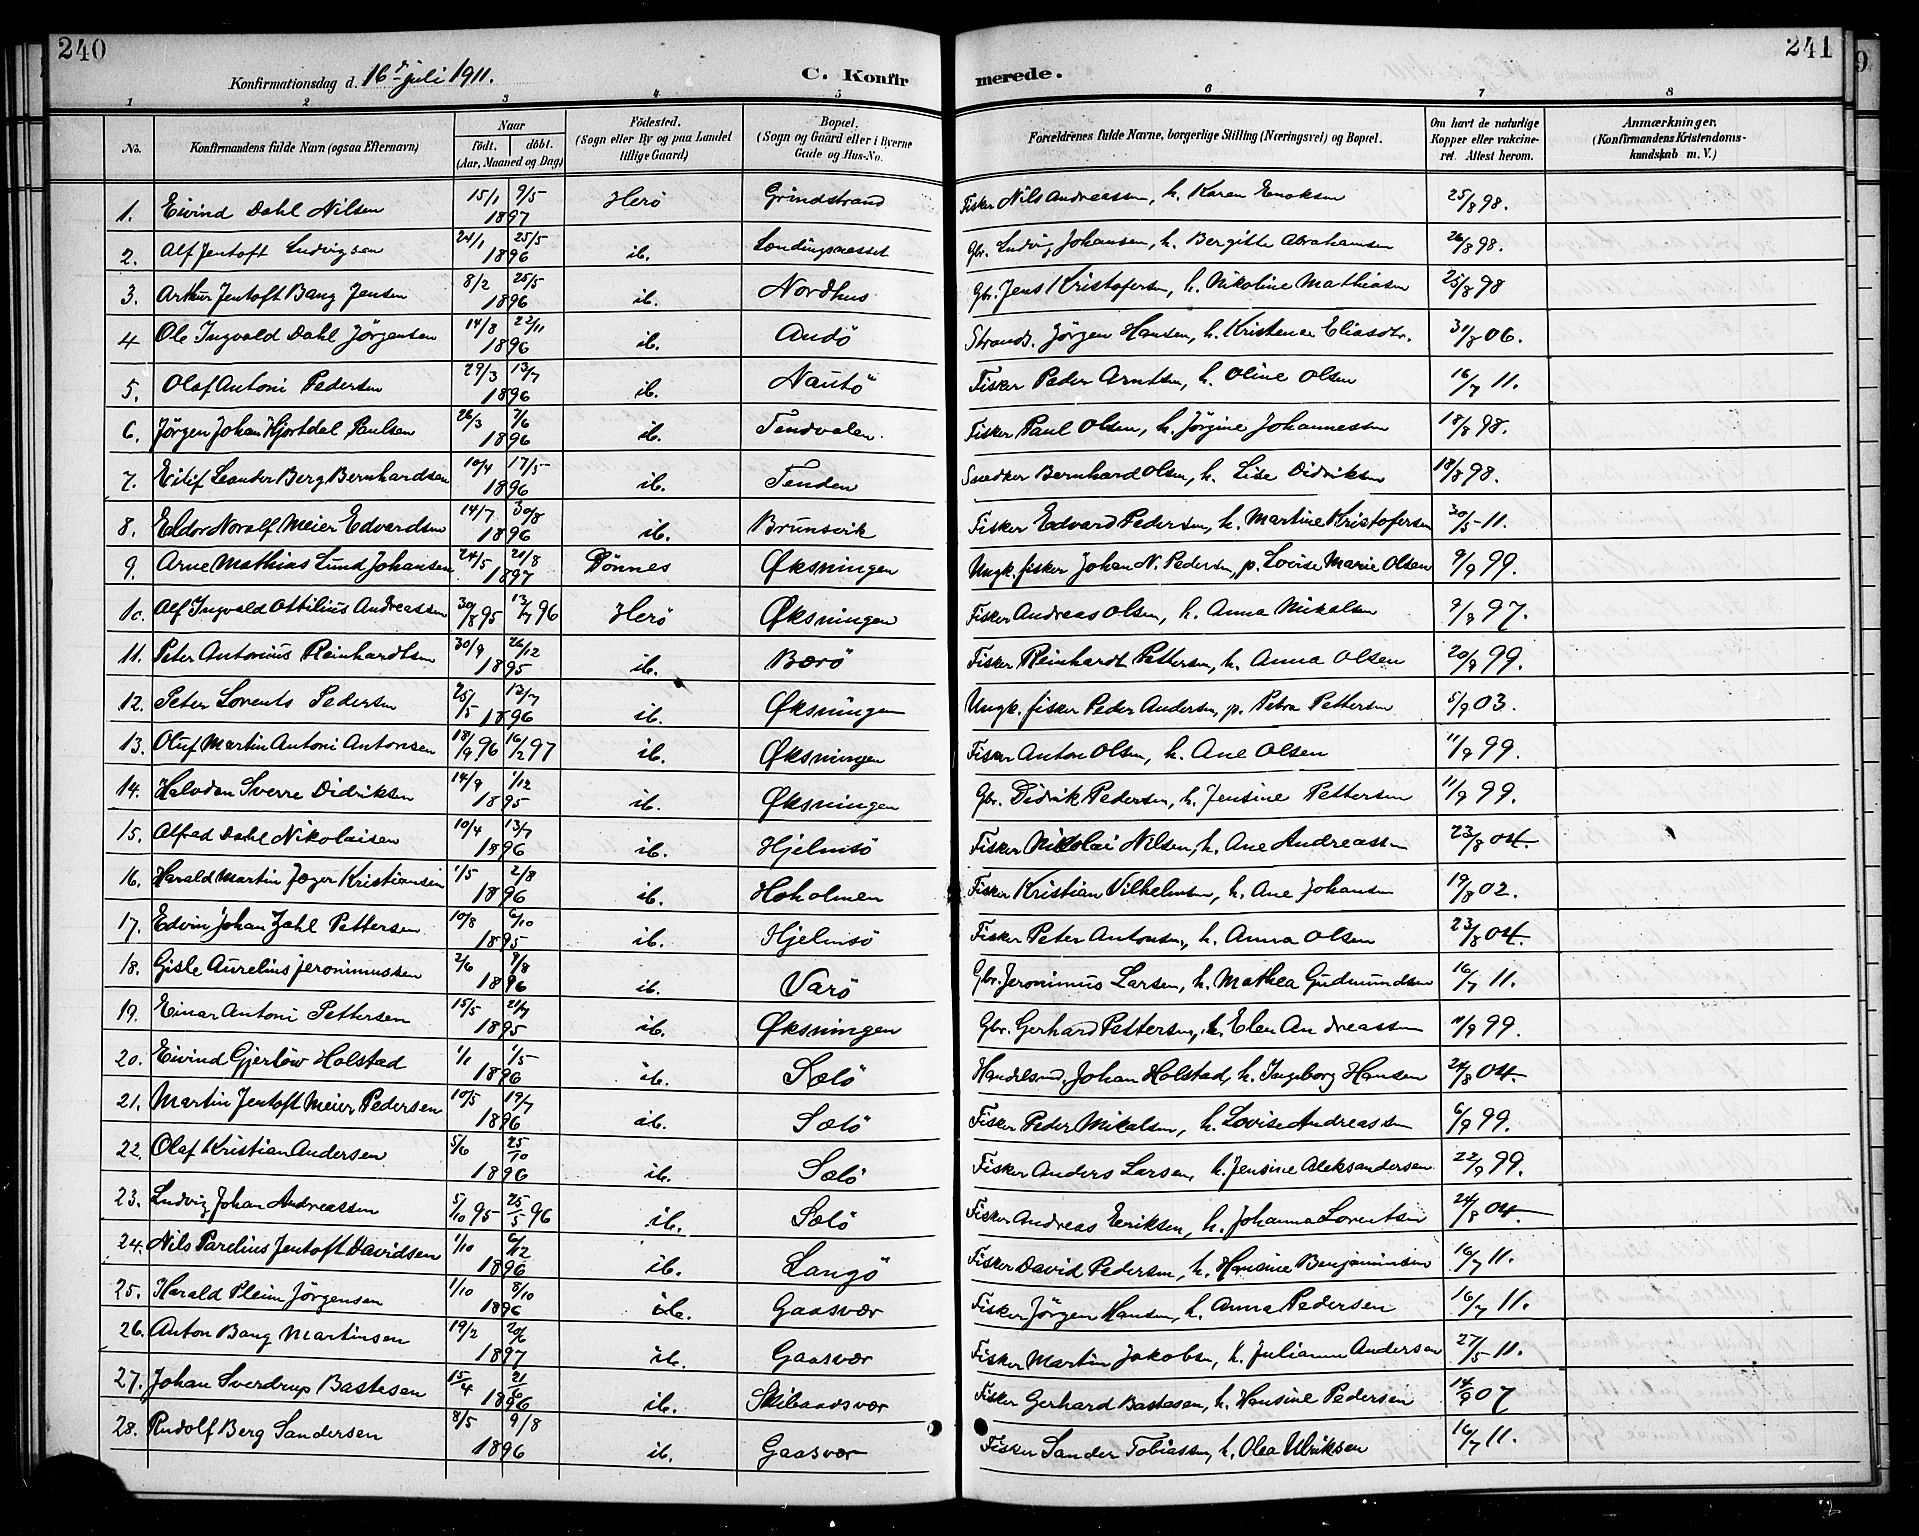 240
241
Konfirmationsdag d. 16de juli 1911. C. Konfirmerede.
1 2 3 4 5 6 7 8
No. Konfirmandens fulde Navn (ogsaa Efternavn) Naar født. døbt. (Aar, Maaned og Dag) Födested. (Sogn eller By og paa Landet tillige Gaard) Bopæl. (Sogn og Gaard eller i Byerne Gade og Hus-No. Forældrenes fulde Navne, borgerlige Stilling (Næringsvei) og Bopæl. Om havt de naturlige Kopper eller vakcineret. Attest herom. Anmærkninger. (Konfirmandens Kristendomskundskab m. V.)
1. Eivind Dahl Nilsen 15/1 9/5 1897 Herö Grindstrand Fisker Nils Andreassen, h. Karen Enoksen 25/8 98.
2. Alf Jentoft Ludvigsen 24/1 25/5 1896 ib. Landingsnesset Gbr. Ludvig Johansen, h. Bergitte Abrahamsen 26/8 98.
3. Arthur Jentoft Bang Jensen 8/2 25/5 1896 ib. Nordhus Gbr. Jens Kristofersen, h. Nikoline Mathiasen 25/8 98
4 Ole Ingvald Dahl Jörgensen 14/8 22/11 1896 ib. Andö Strands. Jörgen Hansen, h. Kristense Eliasdtr. 31/8 06.
5. Olaf Antoni Pedersen 29/3 13/7 1896 ib. Nautö Fisker Peder Arntsen, h. Oline Olsen 16/7 11.
6. Jörgen Johan Hjortdal Paulsen 26/3 7/6 1896 ib. Tendvalen. Fisker Paul Olsen, h. Jörgine Johannessen 18/8 98.
7. Eilif Leander Berg Bernhardsen 10/4 17/5 1896 ib. Tenden Snedker Bernhard Olsen, h. Lise Didriksen 18/8 98.
8. Eldor Noralf Meier Edvardsen 14/7 30/8 1896 ib. Brunsvik Fisker Edvard Pedersen, h. Martine Kristofersen 30/5-11.
9. Arne Mathias Lund Johansen 24/5 21/8 1897 Dönnes Øksningen Ungk. fisker Johan N. Pedersen, p. Lovise Marie Olsen 9/9 99.
10. Alf Ingvald Ottilius Andreassen 30/8 95 13/7 96 Herö Øksningen Fisker Andreas Olsen, h. Anna Mikalsen 9/9 97.
11. Peter Antonius Reinhardtsen 30/9 26/12 1895 ib. Bærö Fisker Reinhardt Pettersen, h. Anna Olsen 20/9 99.
12. Peter Lorents Pedersen 25/5 13/7 1896 ib. Øksningen Ungk. fisker Peder Andersen, p. Petra Pettersen 5/9 03.
13. Oluf Martin Antoni Antonsen 18/9 96 16/2 97 ib. Øksningen Fisker Anton Olsen, h. Ane Olsen 11/9 99.
14. Halvdan Sverre Didriksen 14/9 1/12 1895 ib. Øksningen Gbr. Didrik Pedersen, h. Jensine Pettersen 11/9 99.
15. Alfred Dahl Nikolaisen 10/4 13/7 1896 ib. Hjelmsö Fisker Nikolai Nilsen, h. Ane Andreassen 23/8 04.
16. Harald Martin Jæger Kristiansen 1/5 2/8 1896 ib. Hoholmen Fisker Kristian Vilhelmsen, h. Ane Johansen 19/8 02.
17. Edvin Johan Zahl Pettersen 10/8 6/10 1895 ib. Hjelmsö Fisker Peter Antonsen, h. Anna Olsen 23/8 04.
18. Gisle Aurelius Jeronimussen 2/6 9/8 1896 ib. Varö Gbr. Jeronimus Larsen, h. Mathea Gudmundsen 16/7 11.
19. Einar Antoni Pettersen 15/5 21/7 1895 ib. Øksningen Gbr. Gerhard Pettersen, h. Elen Andreassen 11/9 99.
20. Eivind Gjerlöw Holstad 1/1 1/5 1896 ib. Sælö Handelsmd. Johan Holstad, h. Ingeborg Hansen 24/8 04.
21. Martin Jentoft Meier Pedersen 10/5 19/7 1896 ib. Sælö Fisker Peder Mikalsen, h. Lovise Andreassen 6/9 99.
22. Olaf Kristian Andersen 5/6 25/10 1896 ib. Sælö Fisker Anders Larsen, h. Jensine Aleksandersen 22/9 99.
23. Ludvig Johan Andreassen 5/10 95 25/5 96 ib. Sælö Fisker Andreas Eriksen, h. Johanna Lorentsen 24/8 04.
24. Nils Parelius Jentoft Davidsen 1/10 6/12 1896 ib. Langö Fisker David Pedersen, h. Hansine Benjaminsen 16/7 11.
25. Harald Pleim Jörgensen 1/10 8/10 1896 ib. Gaasvær Fisker Jörgen Hansen, h. Anna Pedersen 16/7 11.
26. Anton Bang Martinsen 19/2 20/6 1897 ib. Gaasvær Fisker Martin Jakobsen, h. Julianne Andersen 27/5 11.
27. Johan Sverdrup Bastesen 15/4 21/6 1896 ib. Skibaadsvær Fisker Gerhard Bastesen, h. Hansine Pedersen 14/9 07
28. Rudolf Berg Sandersen 8/5 9/8 1896 ib. Gaasvær Fisker Sander Tobiassen, h. Olea Ulriksen 16/7 11.